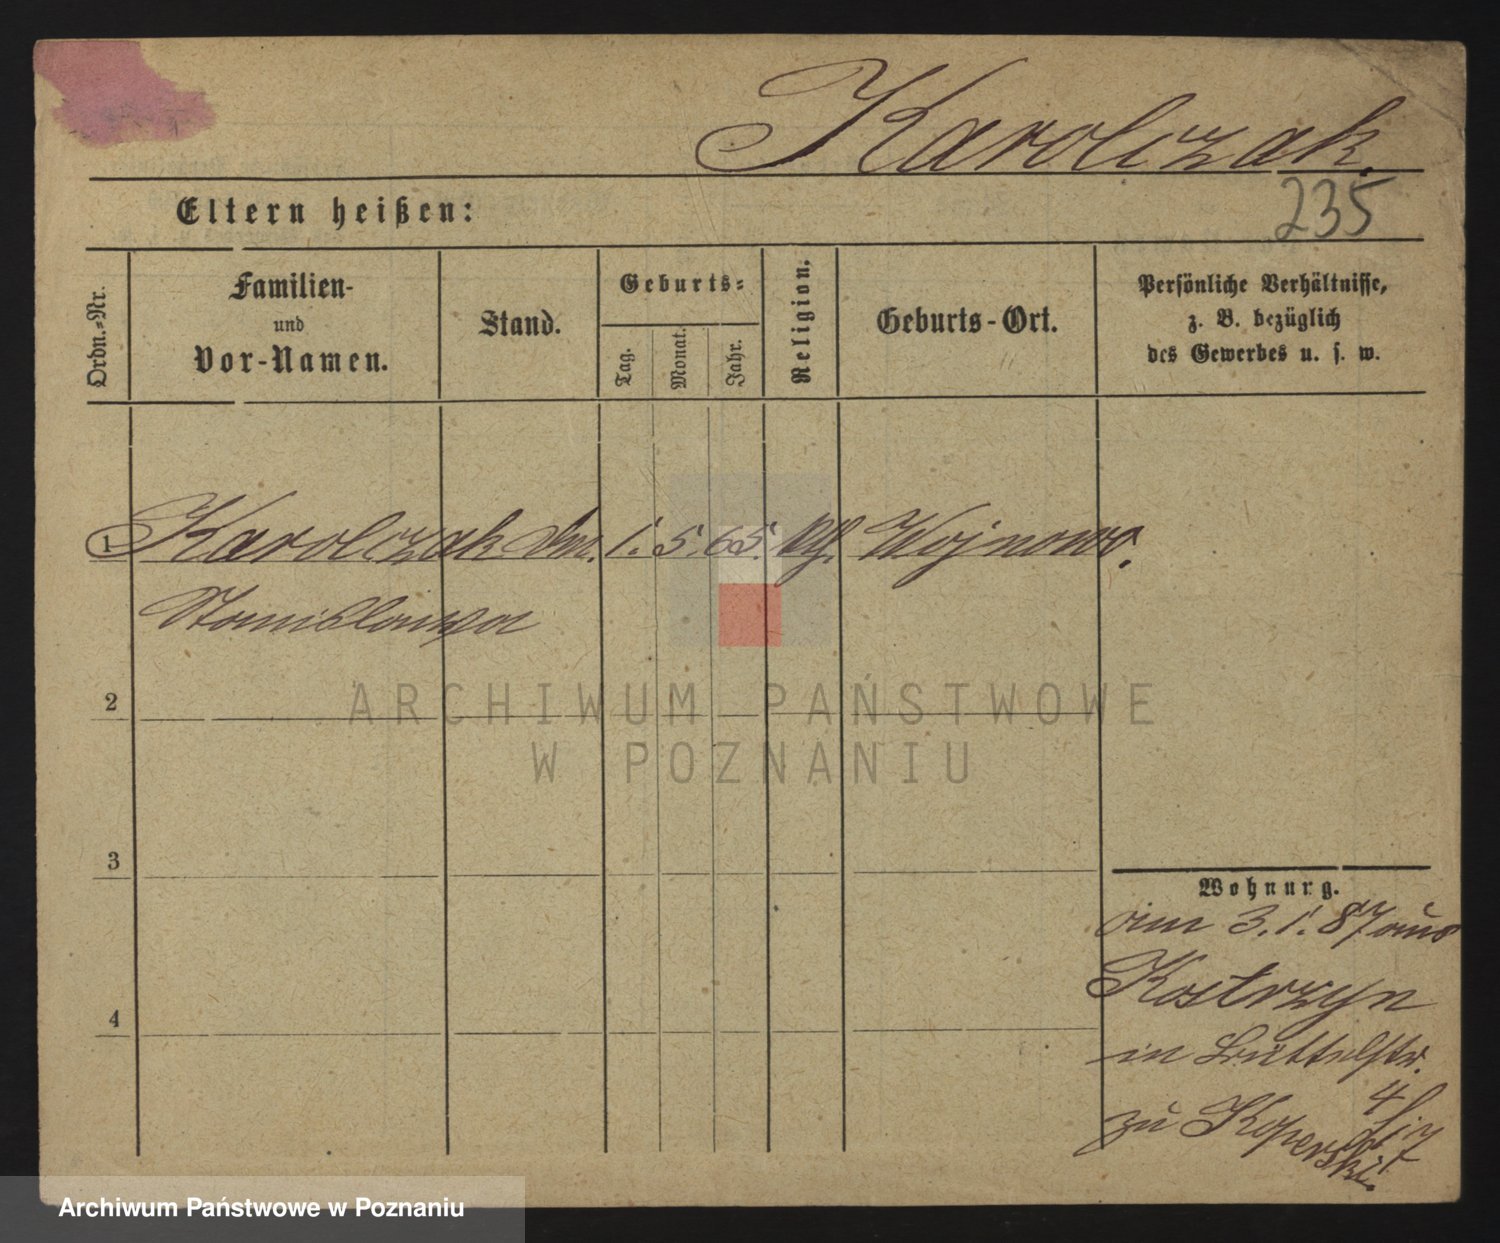 Karolczak.
235
Eltern heißen:
Ordn.-Nr.
Familien-
und
Vor-Namen.
Stand.
Geburts-
Tag.
Monat.
Jahr.
Religion.
Geburts-Ort.
Persönliche Verhältnisse,
z. B. bezüglich
des Gewerbes u. s. w.
1 Karolczak 1. 5. 65. Wojnowo.
Stanislawa
2
ARCHIWUM PAŃSTWOWE
W POZNANIU
3
4
Wohnung.
am 3. 1. 87 aus
Kostrzyn
in
zu Koperski.
Archiwum Państwowe w Poznaniu